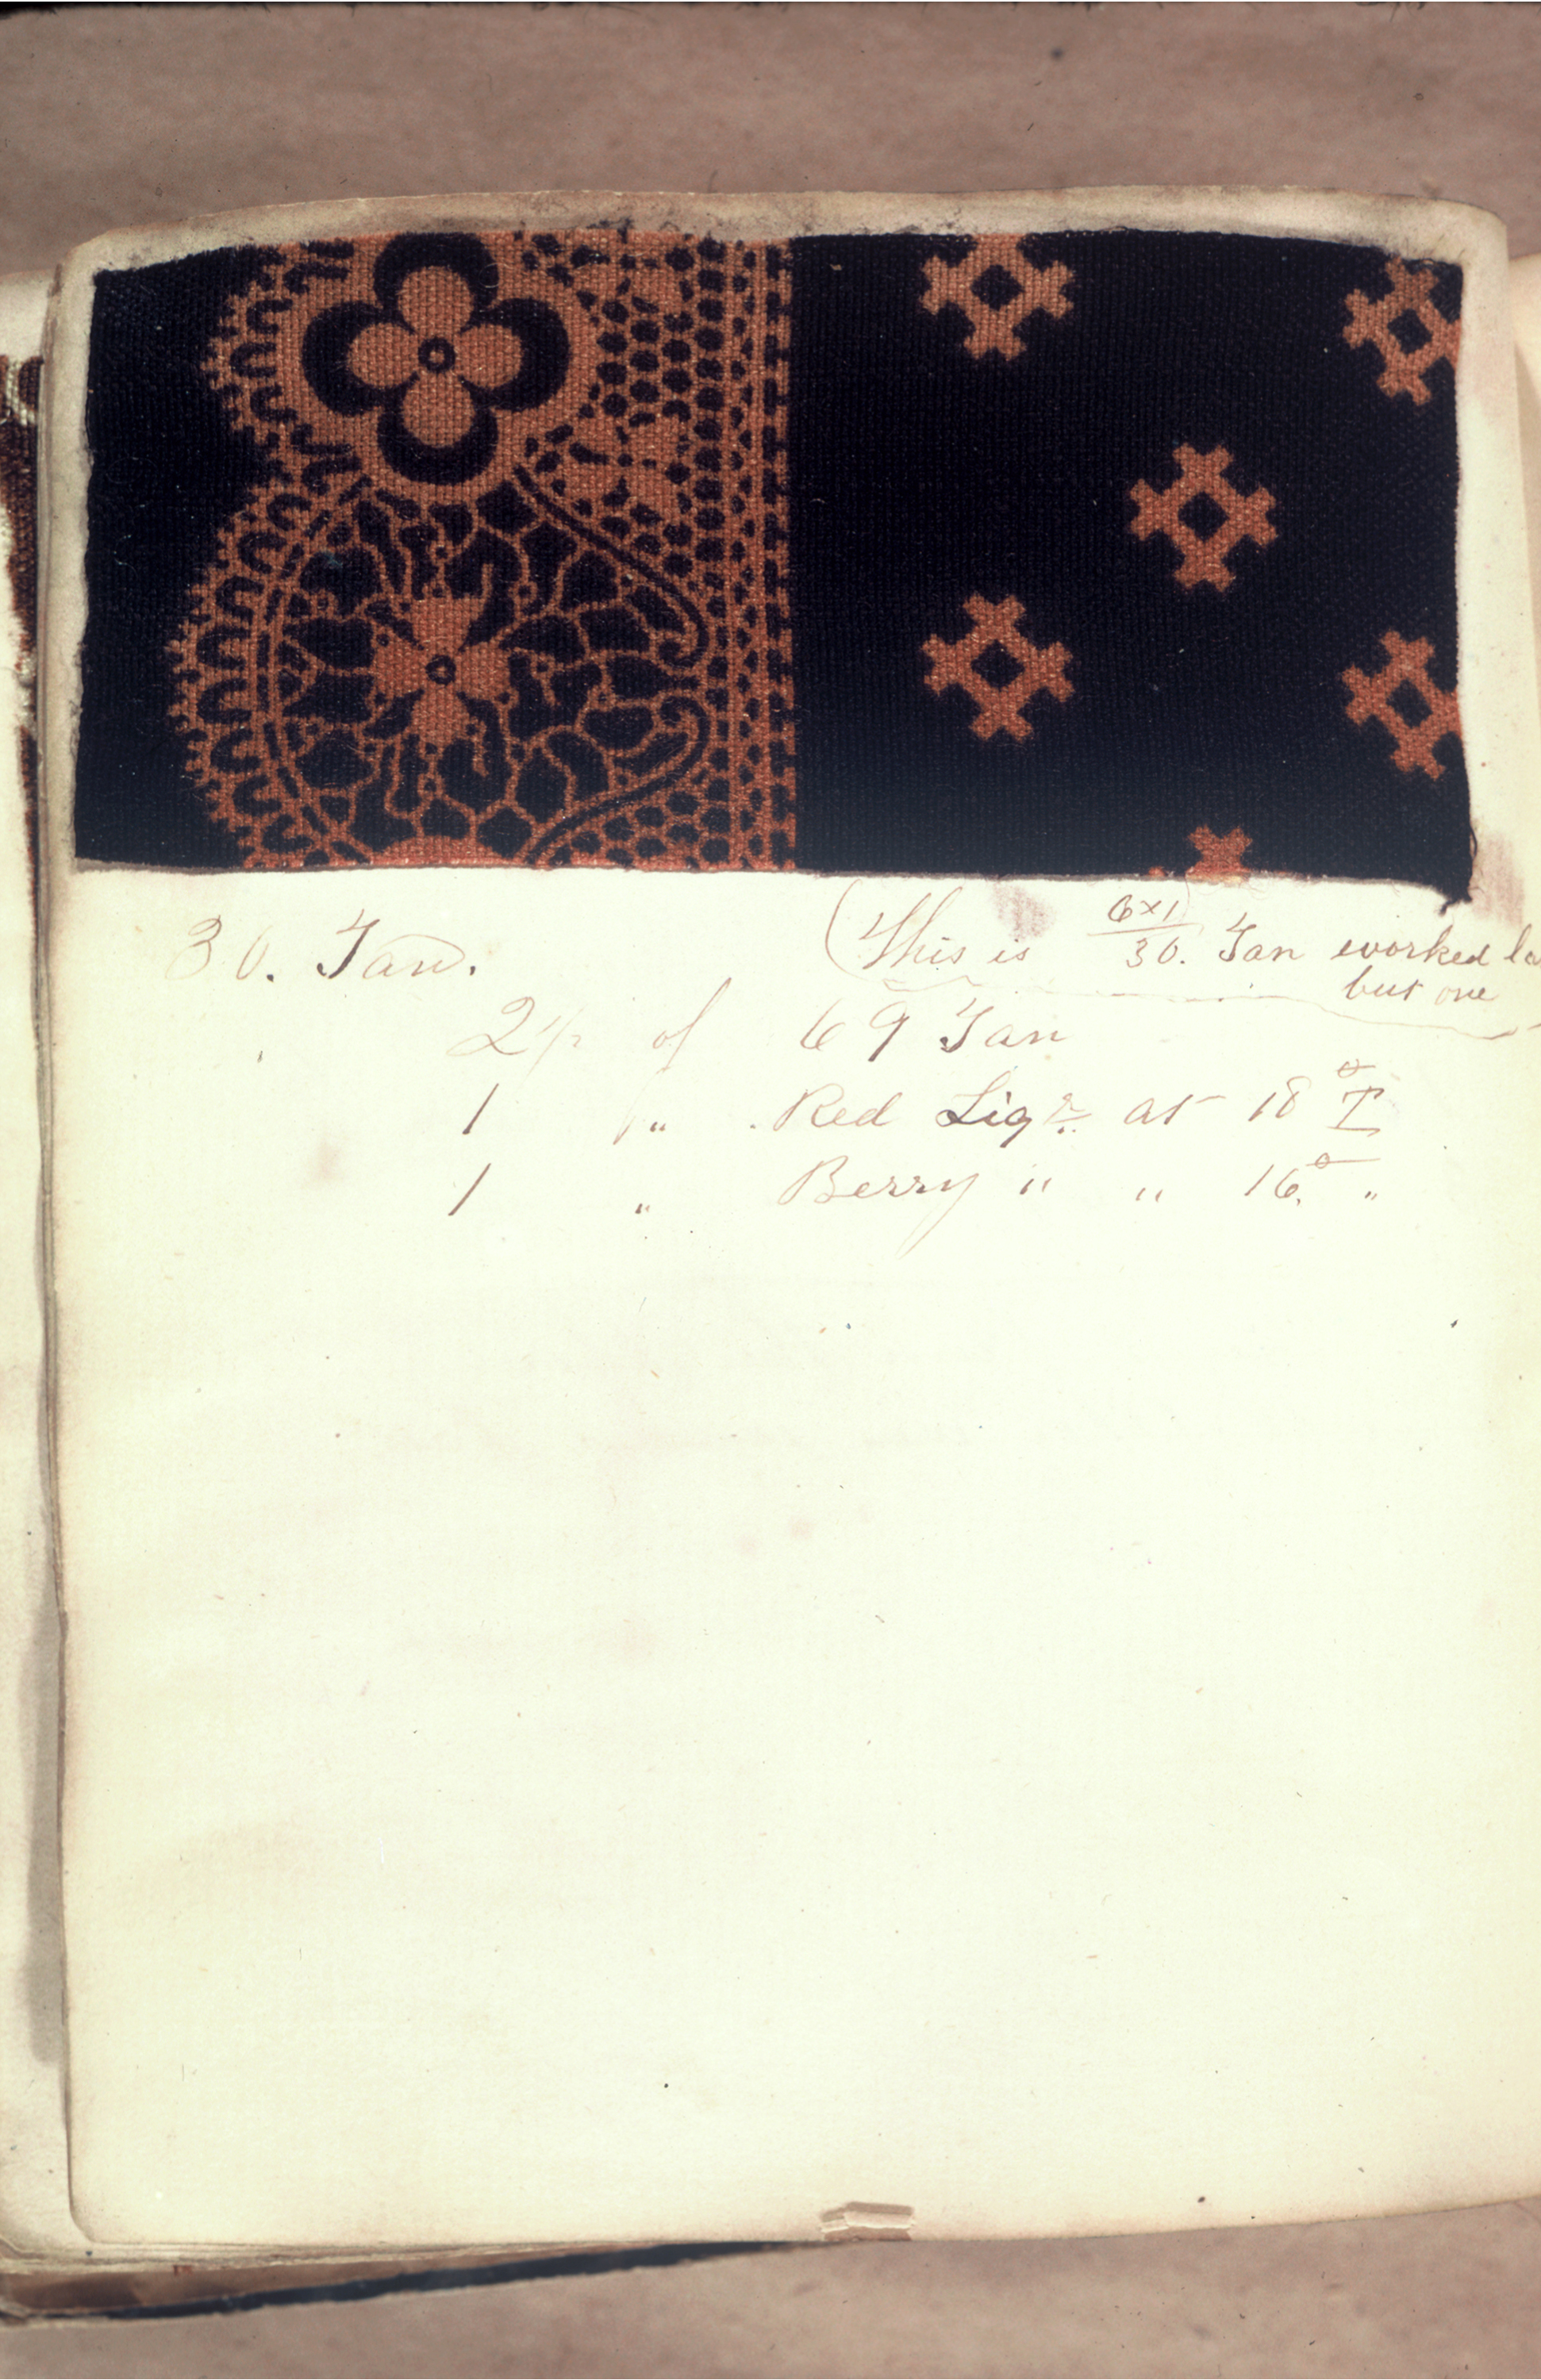 30. Tan.
(This is 6x1/30. Tan worked la
but one
2 p of 69 Tan
1 " Red Liqr. at 18° T
1 " Berry " " 16.° "